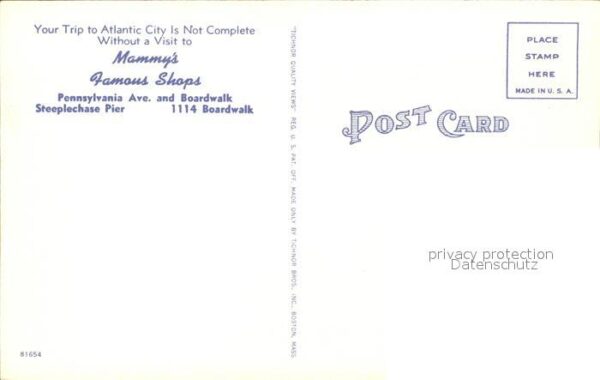 Your Trip to Atlantic City Is Not Complete
Without a Visit to
Mammy's
Famous Shops
Pennsylvania Ave. and Boardwalk
Steeplechase Pier 1114 Boardwalk
"TICHNOR QUALITY VIEWS" REG. U. S. PAT. OFF. MADE ONLY BY TICHNOR BROS., INC., BOSTON, MASS.
POST CARD
PLACE
STAMP
HERE
MADE IN U. S. A.
privacy protection
Datenschutz
81654